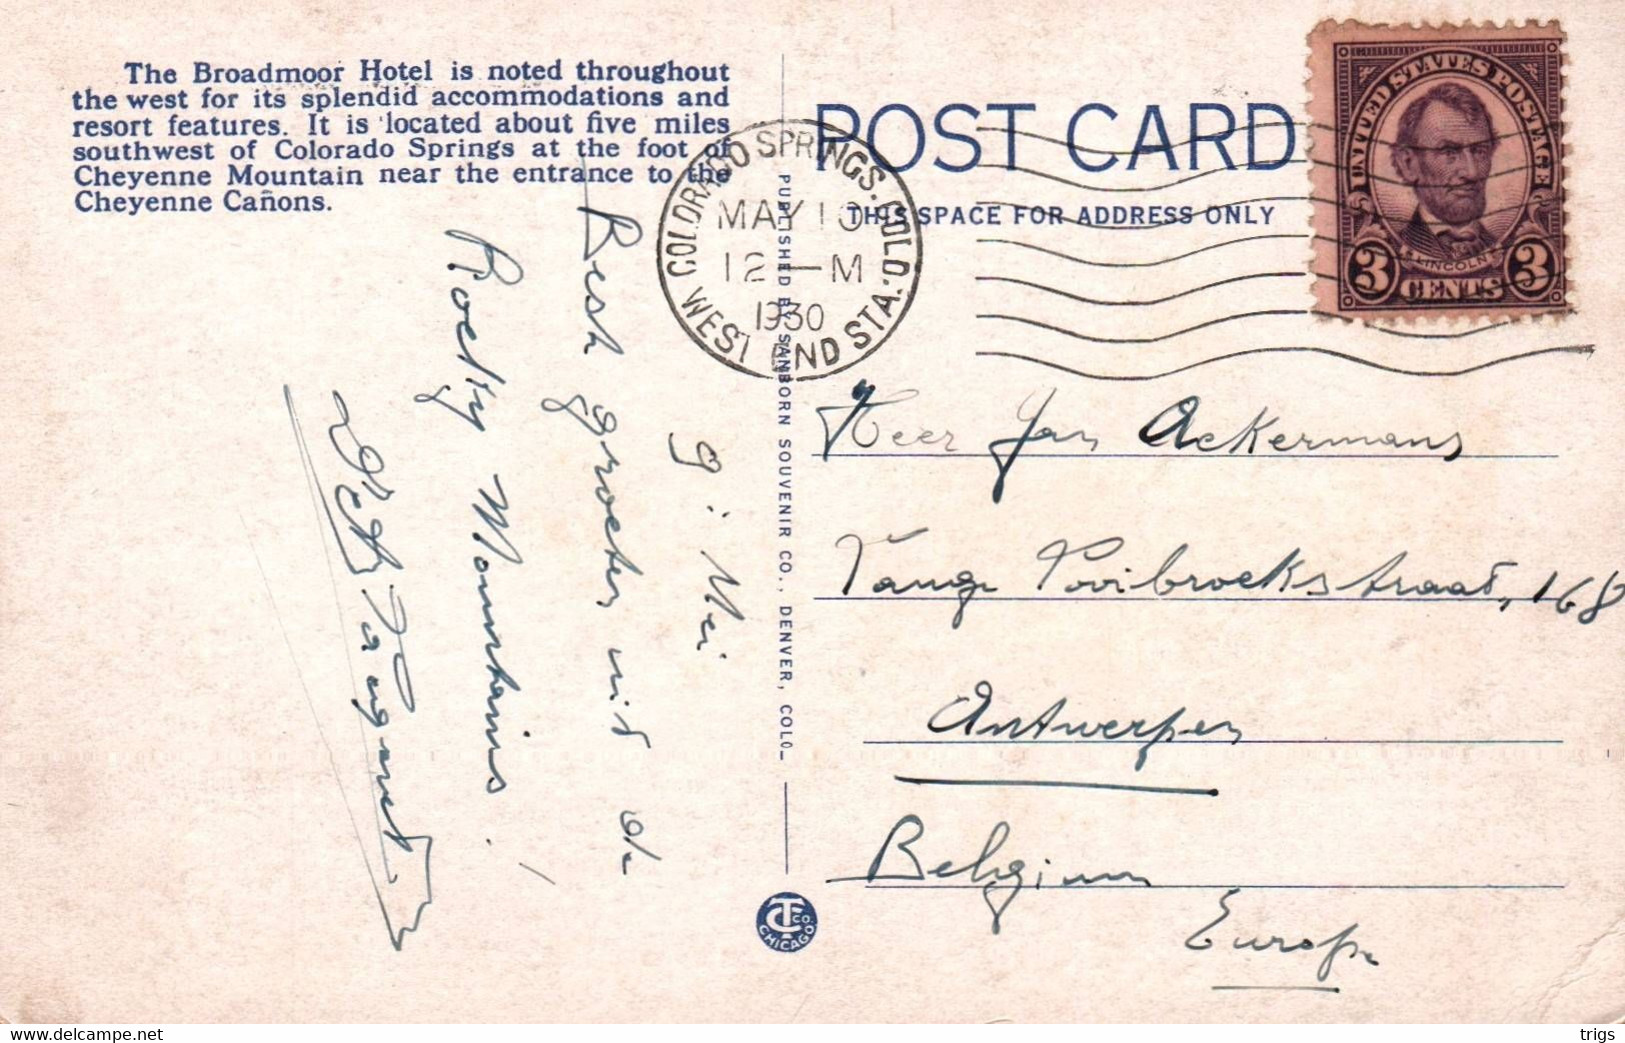 The Broadmoor Hotel is noted throughout
the west for its splendid accommodations and
resort features. It is located about five miles
southwest of Colorado Springs at the foot of
Cheyenne Mountain near the entrance to the
Cheyenne Cañons.
POST CARD
THIS SPACE FOR ADDRESS ONLY
COLORADO SPRINGS. COLO.
MAY 10
12 — M
1930
WEST END STA.
UNITED STATES POSTAGE
LINCOLN
3 CENTS 3
PUBLISHED BY SANBORN SOUVENIR CO., DENVER, COLO.
CT CO.
CHICAGO.
9: Mei
groeten uit de
Rocky Mountains!
Heer Jan Ackermans
straat, 168
Antwerpen
Belgium
Europe
delcampe.net
trigs